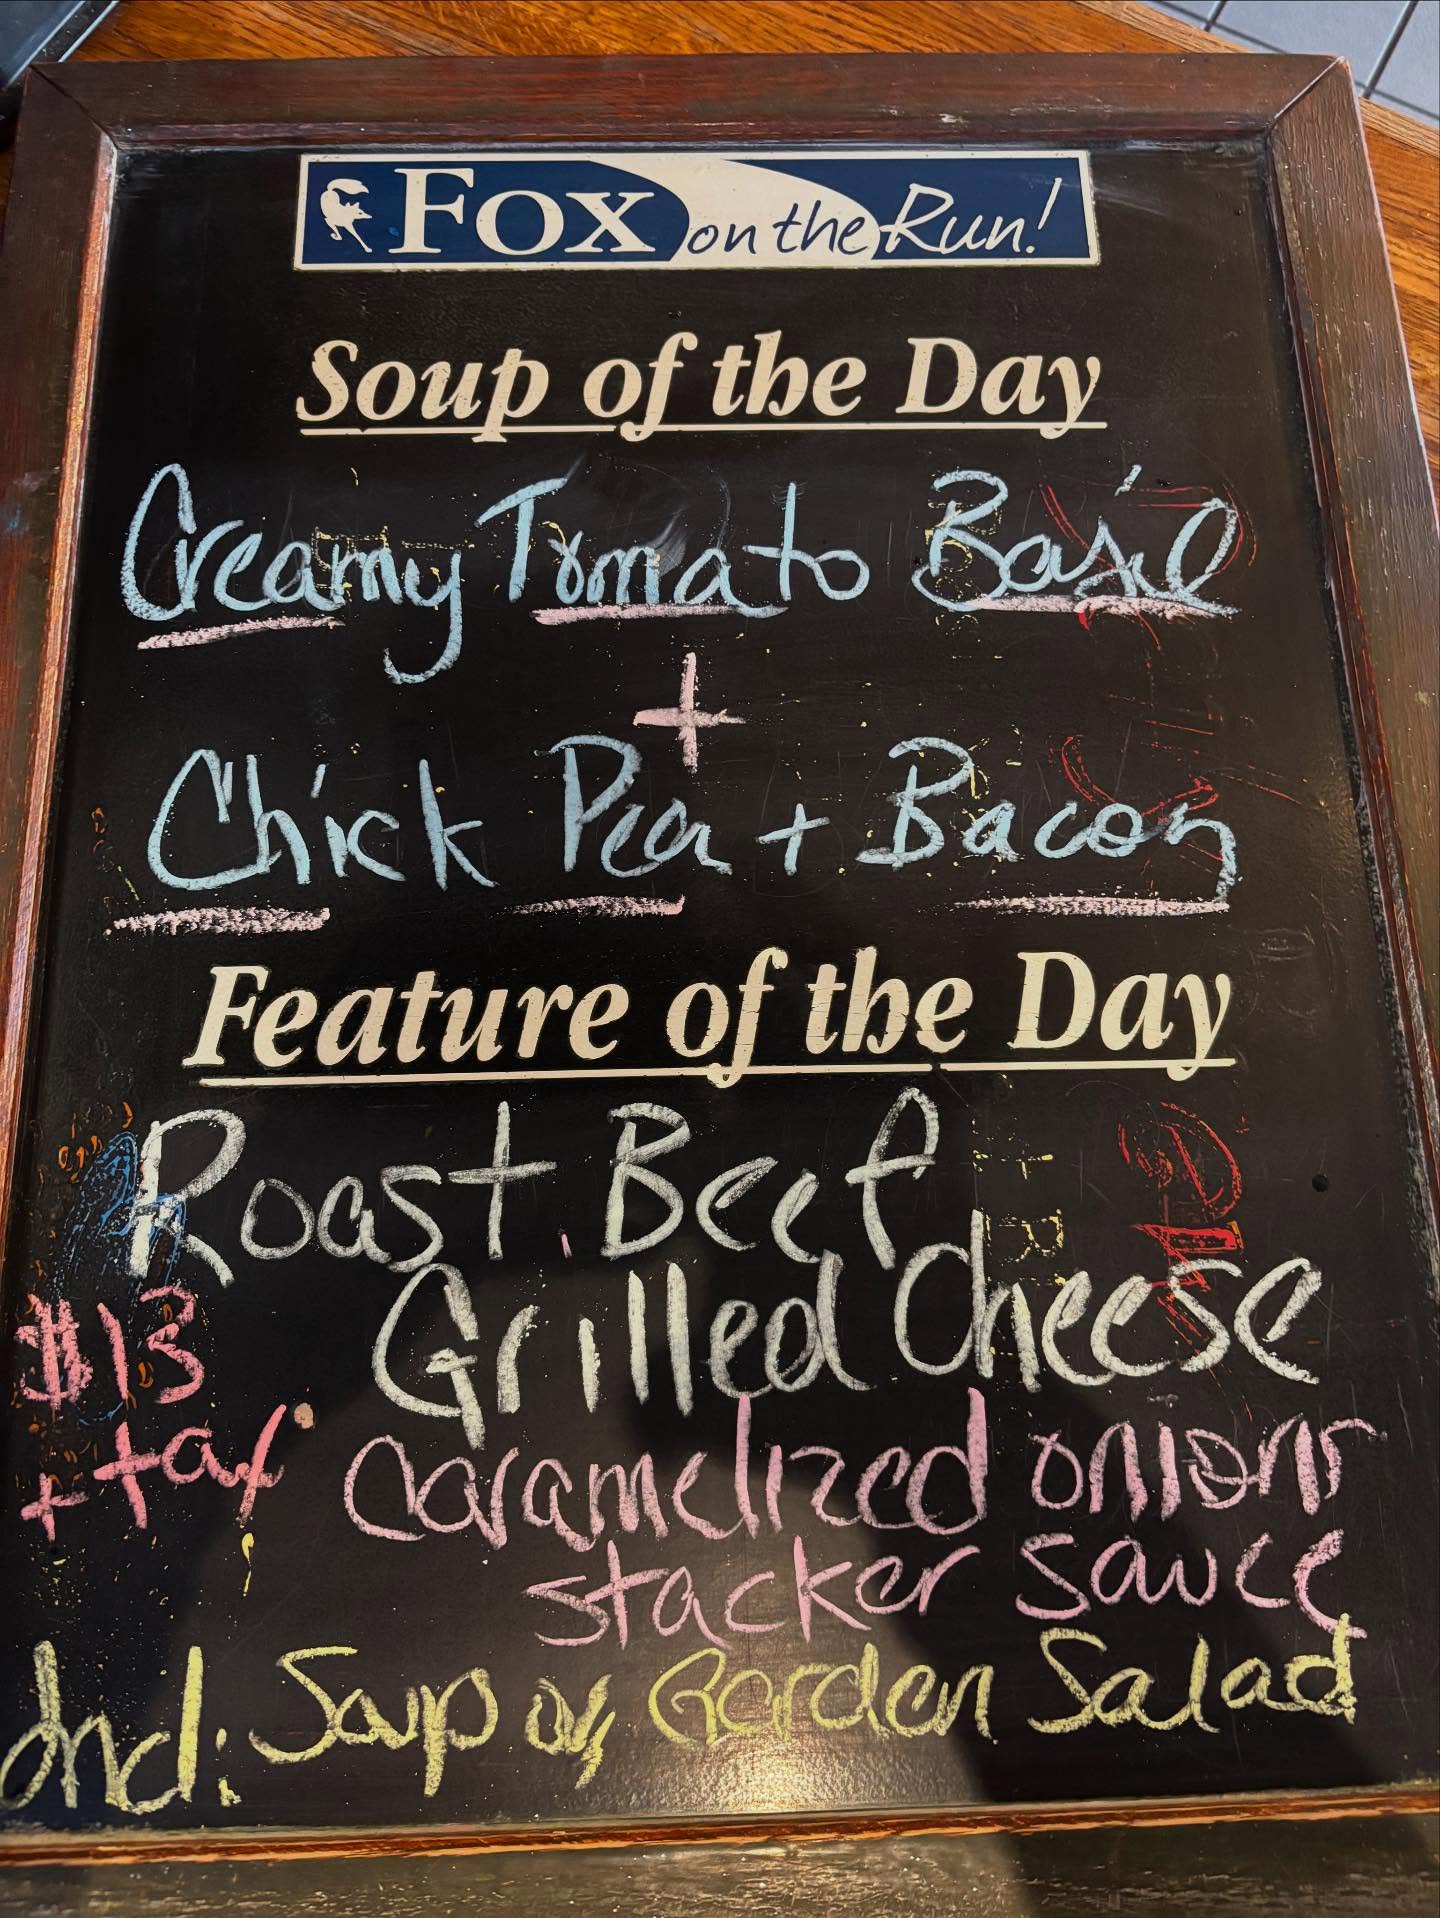 Fox on the Run!
Soup of the Day
Creamy Tomato Basil
+
Chick Pea + Bacon
Feature of the Day
Roast Beef
Grilled Cheese
$13
+ tax
Caramelized onions
stacker sauce
Incl: Soup or Garden Salad